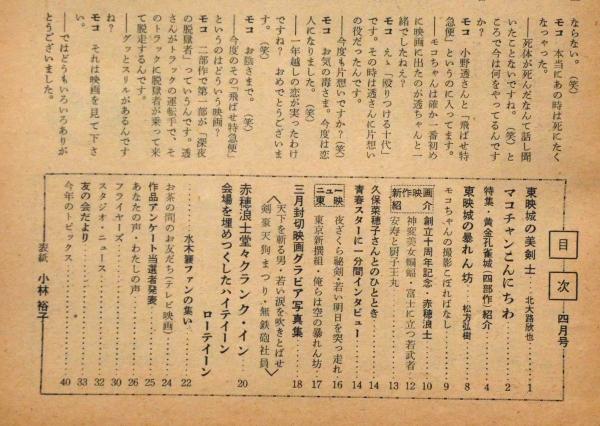 ならない。（笑）
モコ　本当にあの時は死にたく
なっちゃった。
――死体が死んだなんて話し聞
いたことないですね。（笑）と
ころで今は何をやってるんです
か？
モコ　小野透さんと「飛ばせ特
急便」というのに入ってます。
――モコちゃんは確か一番初め
に映画に出たのが透ちゃんと一
緒でしたねえ？
モコ　えゝ「殴りつける十代」
です。その時は透さんに片想い
の役だったんです。
――今度も片想いですか？（笑）
モコ　お気の毒さま。今度は恋
人になりました。（笑）
――一年越しの恋が実ったわけ
ですね？　おめでとうございま
す。（笑）
モコ　お蔭さまで。（笑）
――今度のその「飛ばせ特急便」
というのはどういう映画？
モコ　二部作で第一部が「深夜
の脱獄者」っていうんです。透
さんがトラックの運転手で、そ
のトラックに脱獄者が乗って来
て脱走するんです。
――グッとスリルがあるんです
ね？
モコ　それは映画を見て下さ
い。
――ではどうもいろいろありが
とうございました。
目次　四月号
東映城の美剣士　北大路欣也……1
マコチャンこんにちわ……2
特集・黄金孔雀城（四部作）紹介……4
東映城の暴れん坊　松方弘樹……8
モコちゃんの撮影こぼればなし……9
新作映画紹介　創立十周年記念・赤穂浪士……10
神変美女蝙蝠・富士に立つ若武者……12
安寿と厨子王丸……13
久保菜穂子さんとのひととき……14
青春スターに一分間インタビュー……14
ニュー東映　夜ざくら秘剣・若い明日を突っ走れ……16
東京新撰組　俺らは空の暴れん坊……17
三月封切映画グラビア写真集……18
〈天下を斬る男・若い涙を吹きとばせ
剣豪天狗まつり・無鉄砲社員〉
赤穂浪士堂々クランク・イン……20
会場を埋めつくしたハイティーン
ローティーン
水木襄ファンの集い……22
お茶の間のお友だち（テレビ映画）……24
作品アンケート当選者発表……25
あなたの声・わたしの声……26
フライヤーズ……30
スタジオ・ニュース……32
友の会だより……33
今年のトピックス……40
表紙　小林裕子